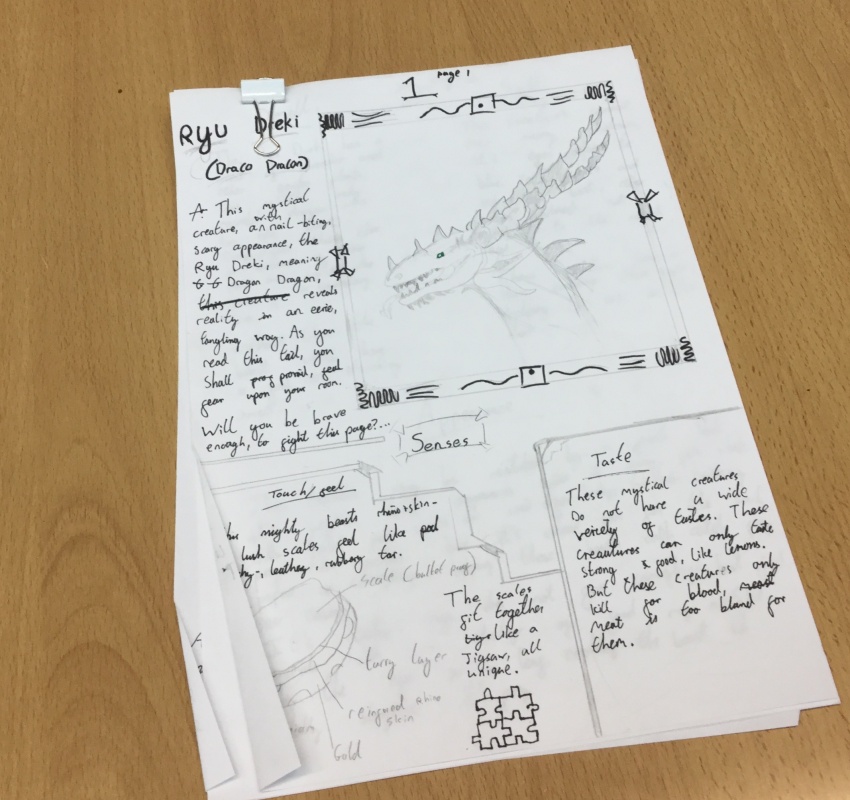 1 Page 1
Ryu Dreki
(Draco Dracon)
A This mystical
with
creature, an nail-biting,
scary appearance, the
Ryu Dreki, meaning
Dragon Dragon,
this creature reveals
reality in an eerie,
tangling way. As you
read this tail, you
shall
fear upon your room.
Will you be brave
enough, to fight this page?...
Senses
Touch/feel
mighty beasts rhino skin-
scales feel like
leathery, rubbery tar.
scale (bullet proof)
tarry layer
skin
Gold
The scales
fit together
like a
Jigsaw, all
unique.
Taste
These mystical creatures
Do not have a wide
vericty of tastes. These
creautures can only taste
strong food, like lemons.
But these creatures only
kill for blood, meat
meat is too bland for
them.